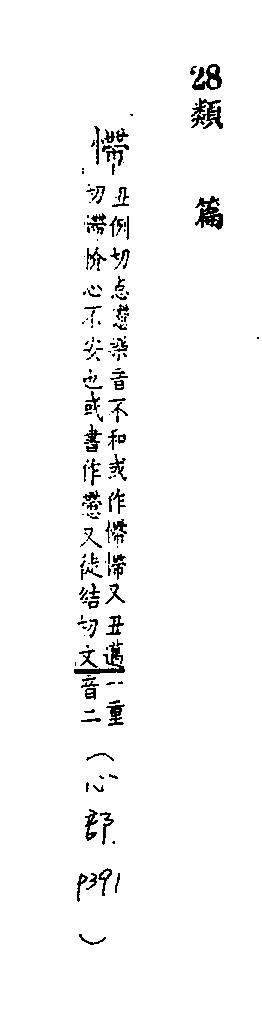 28
類篇
慸
丑例切惉懘樂音不和或作㦅懘又丑邁
切慸𢝔心不安也或書作懘又徒結切文一重音二
(心部
p391
)